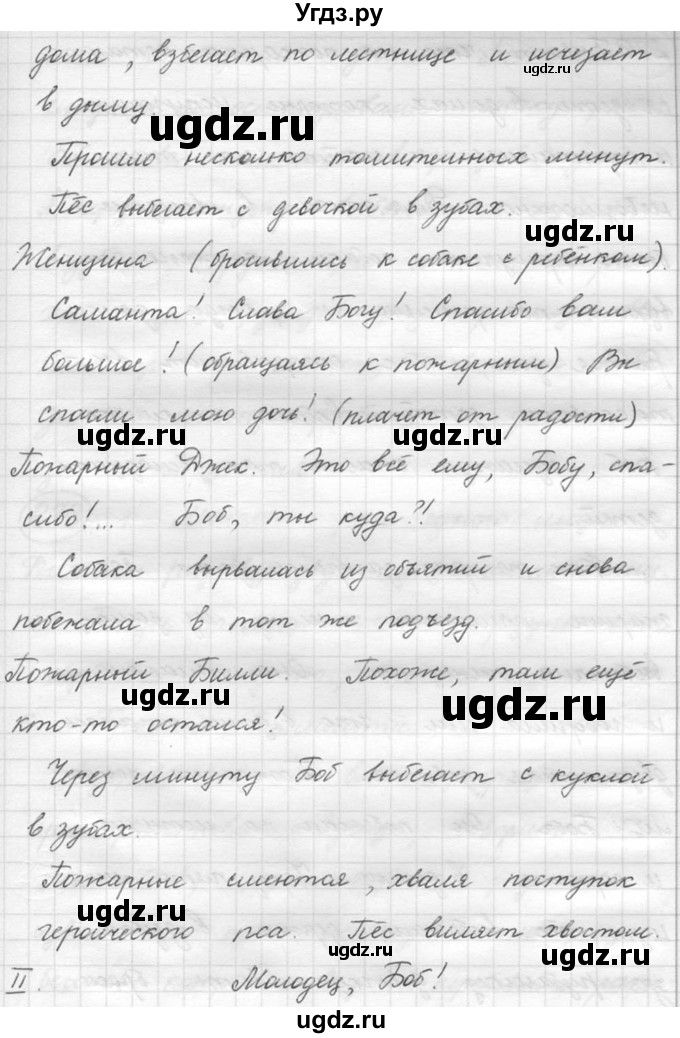 Угдз.ру
дома, взбегает по лестнице и исчезает
ugdz.ru
в дыму.
ugdz.ru
ugdz.ru
Прошло несколько томительных минут.
Пёс выбегает с девочкой в зубах.
ugdz.ru
Женщина (бросившись к собаке с ребёнком).
Саманта! Слава Богу! Спасибо вам
большое! (обращаясь к пожарным) Вы
спасли мою дочь! (плачет от радости)
ugdz.ru
ugdz.ru
Пожарный Джек. Это всё ему, Бобу, спа-
сибо!... Боб, ты куда?!
Собака вырвалась из объятий и снова
побежала в тот же подъезд.
Пожарный Билли. Похоже, там ещё
ugdz.ru
ugdz.ru
кто-то остался!
Через минуту Боб выбегает с куклой
в зубах.
Пожарные смеются, хваля поступок
ugdz.ru
героического пса. Пёс виляет хвостом.
ugdz.ru
II. Молодец, Боб!
ugdz.ru